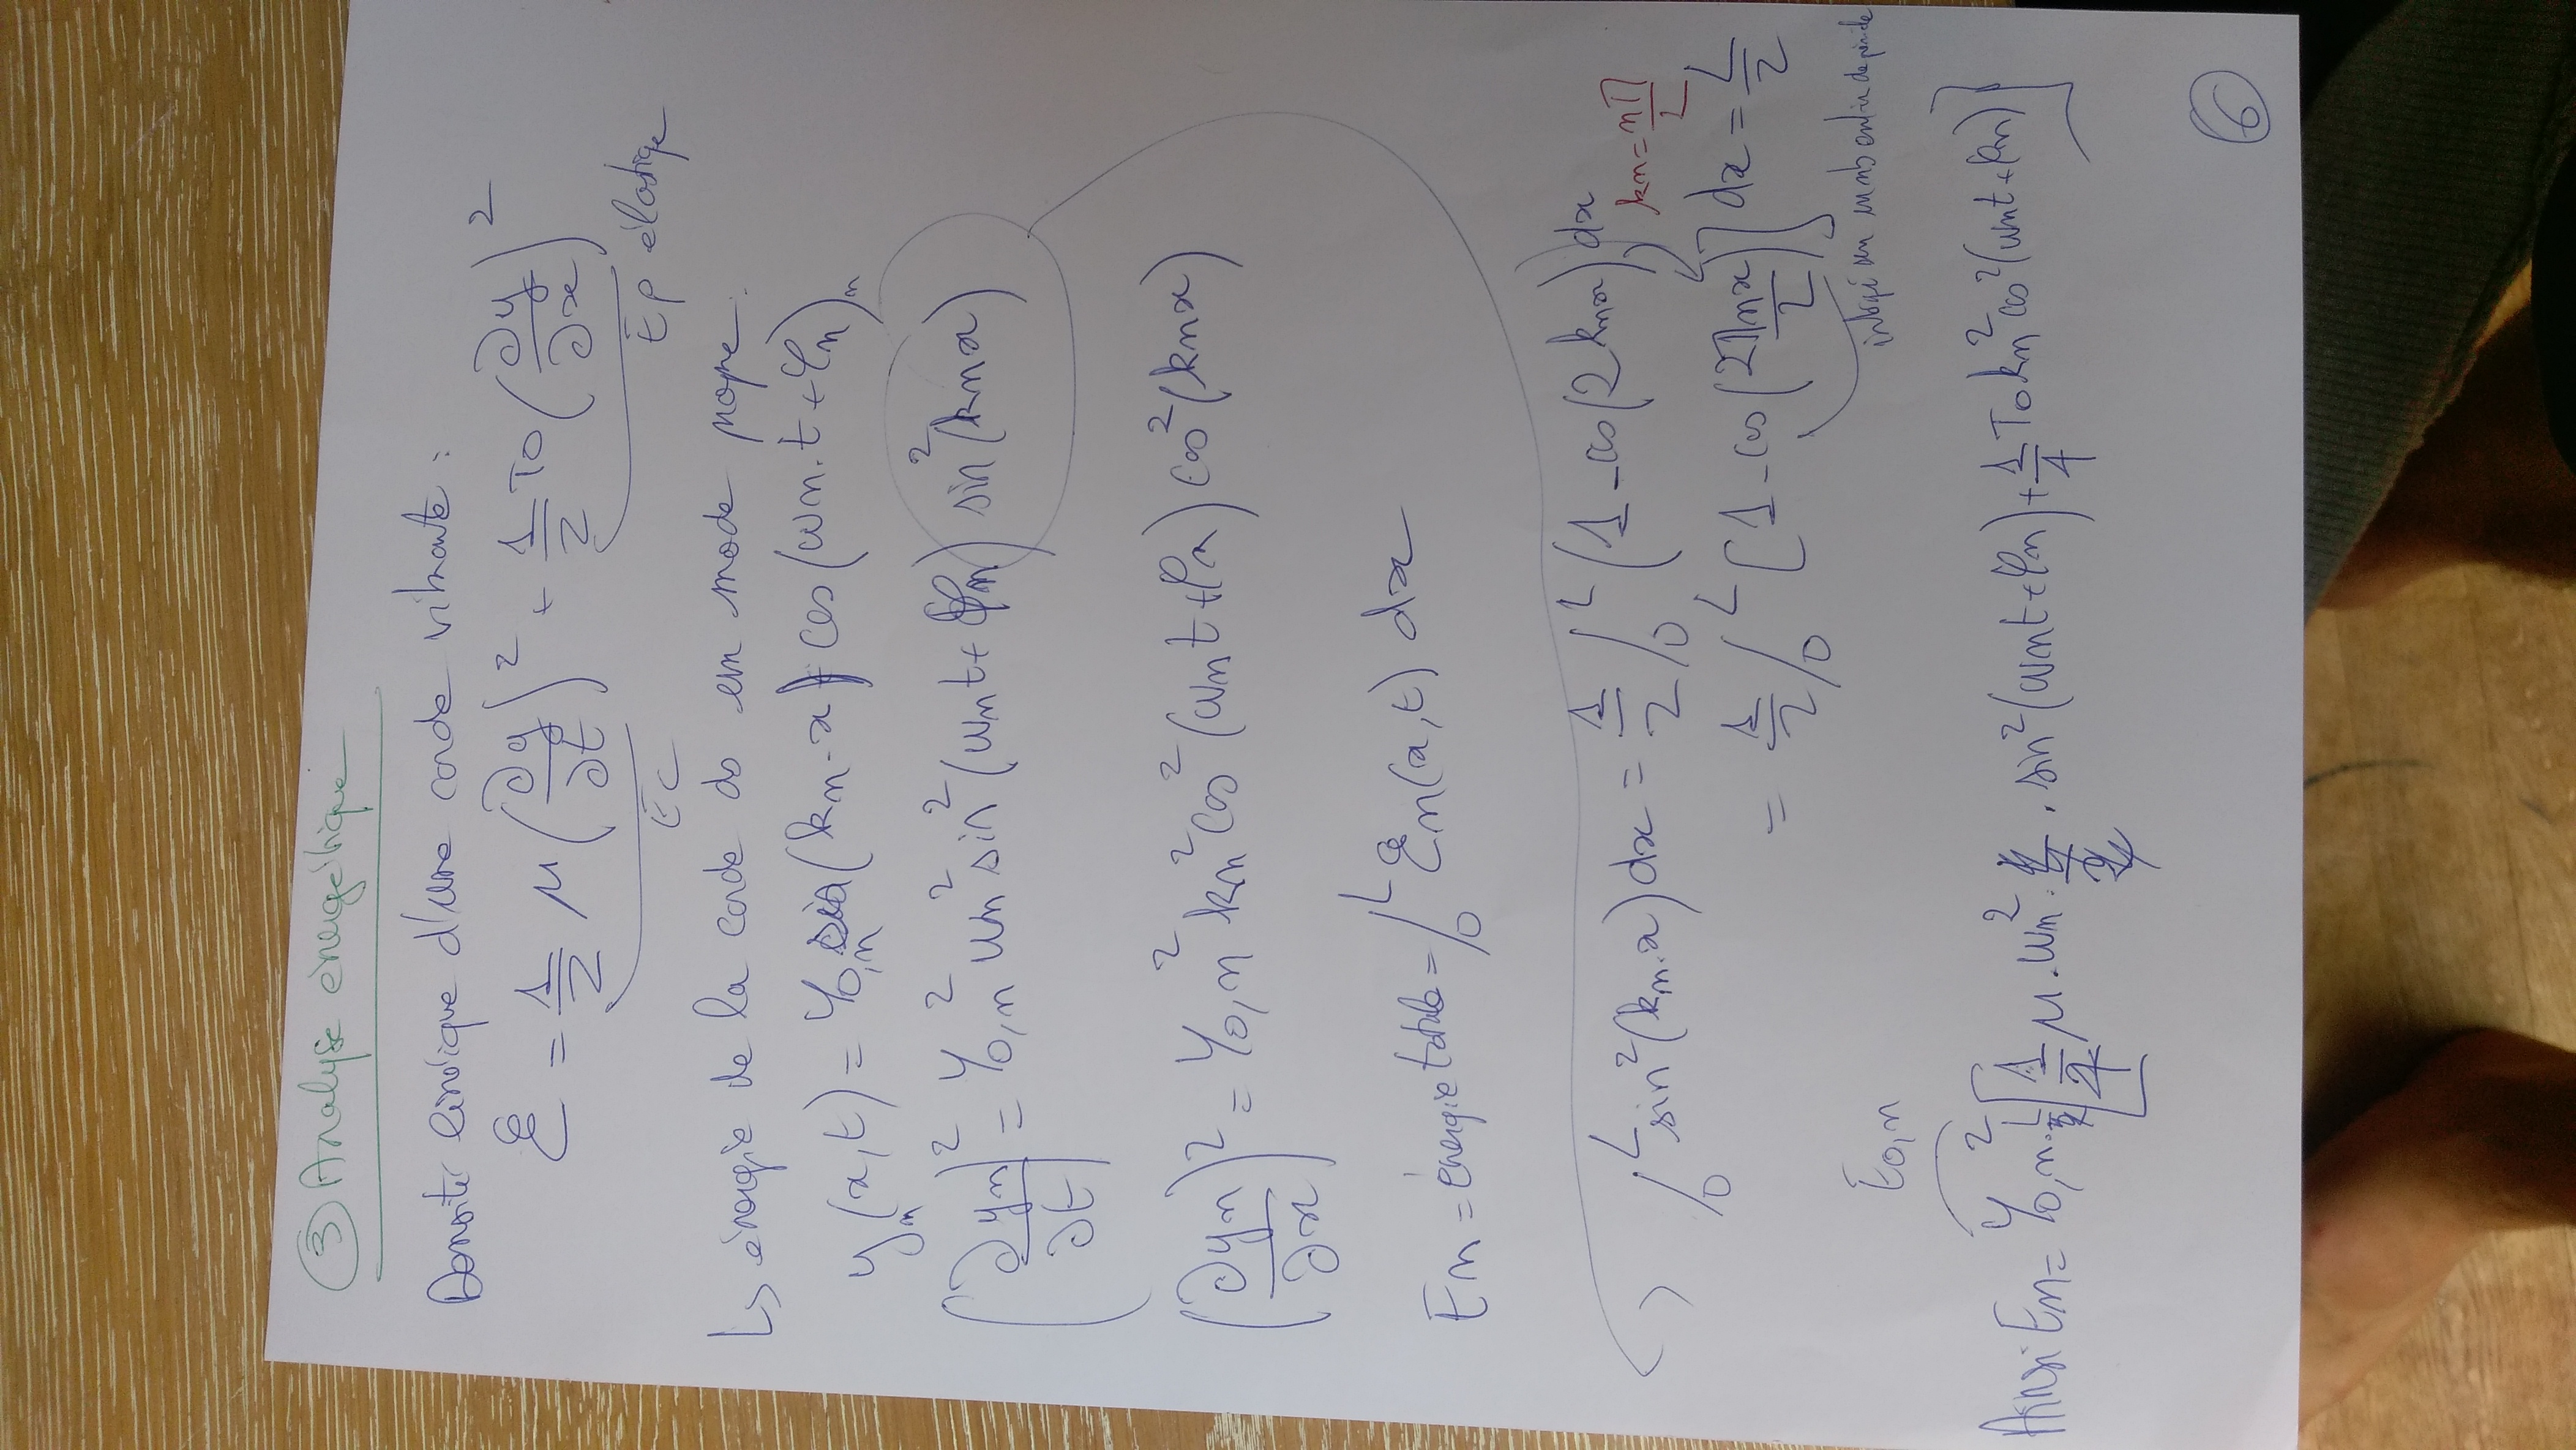 ③ Analyse énergétique
Densité linéique d'une corde vibrante :
ℰ = 1/2 μ (∂y/∂t)² + 1/2 T0 (∂y/∂x)²
Ec Ep élastique
↳ énergie de la corde ds un mode propre.
yn(x,t) = y0,n sin(kn.x) cos(ωn.t + φn)
(∂yn/∂t)² = y0,n² ωn² sin²(ωnt + φn) sin²(knx)
(∂yn/∂x)² = y0,n² kn² cos²(ωnt + φn) cos²(knx)
En = énergie totale = ∫0^L ℰn(x,t) dx
∫0^L sin²(kn.x) dx = 1/2 ∫0^L (1 - cos(2knx)) dx
kn = nπ/L
= 1/2 ∫0^L [1 - cos(2πnx/L)] dx = L/2
intégré sur un nb entier de période
E0,n
Ainsi En = y0,n².L [1/4 μ.ωn². sin²(ωnt + φn) + 1/4 T0 kn² cos²(ωnt + φn)]
⑥